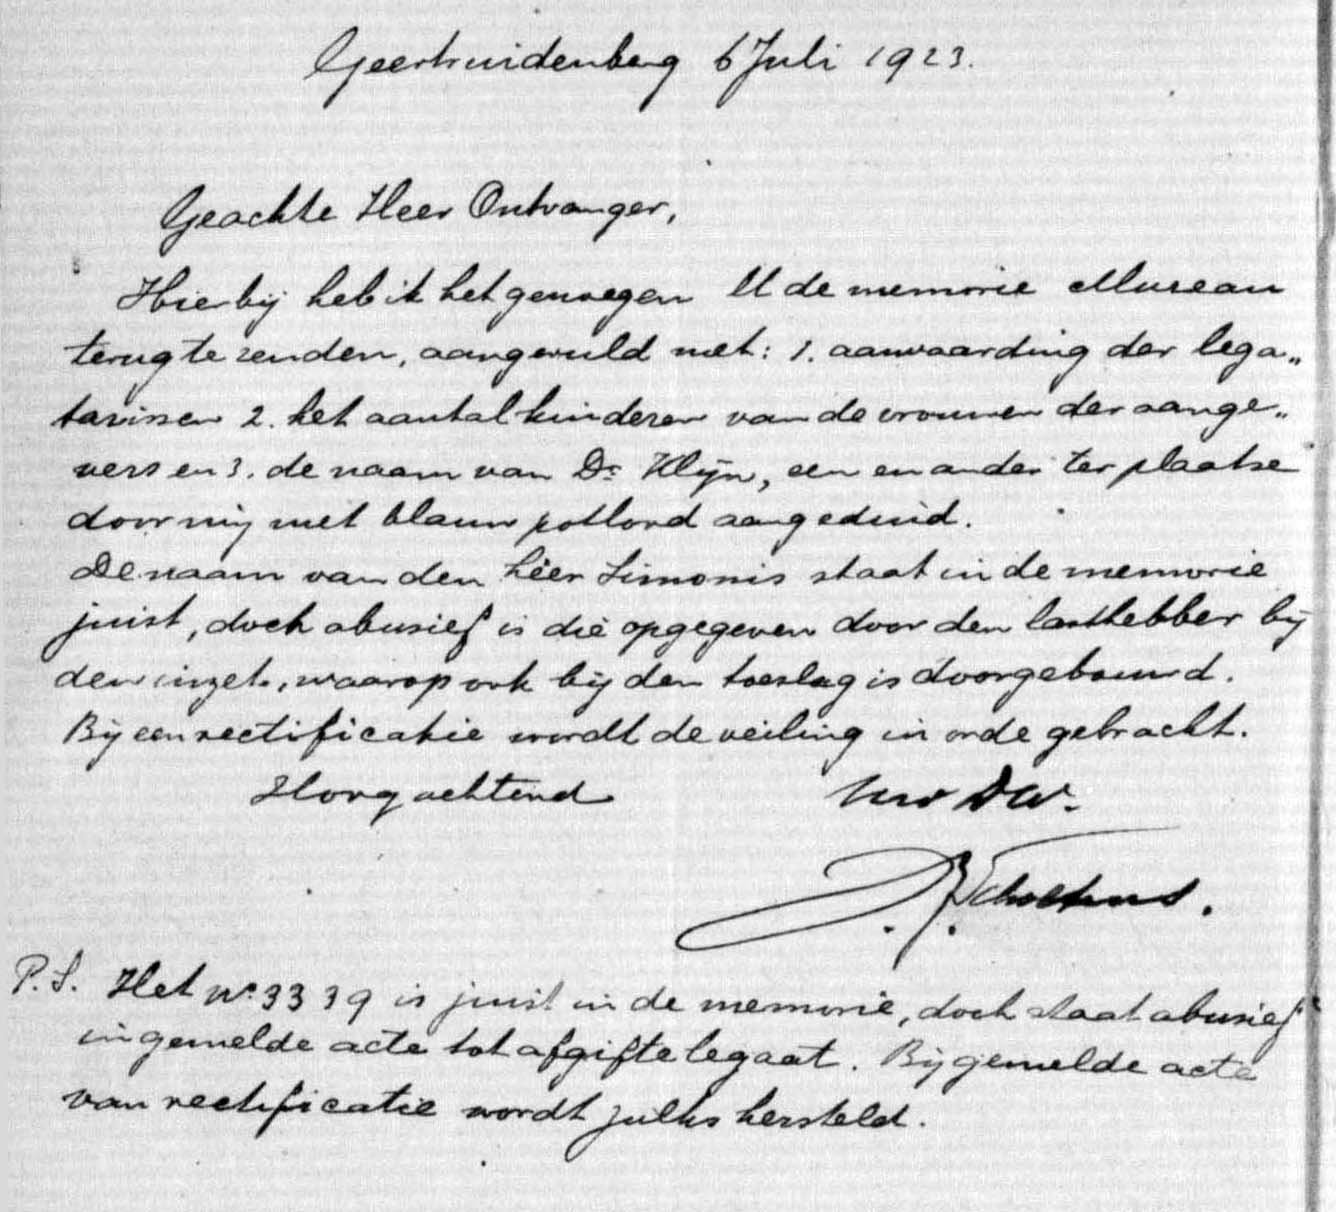 Geertruidenberg 6 Juli 1923.
Geachte Heer Ontvanger,
Hierbij heb ik het genoegen U de memorie Mureau
terug te zenden, aangevuld met: 1. aanvaarding der lega„
tarissen 2. het aantal kinderen van de vrouwen der aange„
vers en 3. de naam van Dr. Klijn, een en ander ter plaatse
door mij met blauw potlood aangeduid.
De naam van den heer Simonis staat in de memorie
juist, doch abusief is die opgegeven door den lasthebber bij
den inzet, waarop ook bij den toeslag is doorgebouwd.
Bij een rectificatie wordt de veiling in orde gebracht.
Hoogachtend Uw DW.
Scholtens.
P.S. Het No. 3339 is juist in de memorie, doch staat abusief
in gemelde acte tot afgifte legaat. Bij gemelde acte
van rectificatie wordt zulks hersteld.